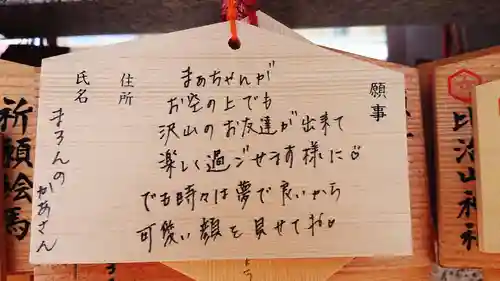 願事
まぁちゃんが
お空の上でも
沢山のお友達が出来て
楽しく過ごせます様に
でも時々は夢で良いから
可愛い顔を見せてね
住所
氏名
まろんの
かあさん
祈願絵馬
比治山神社